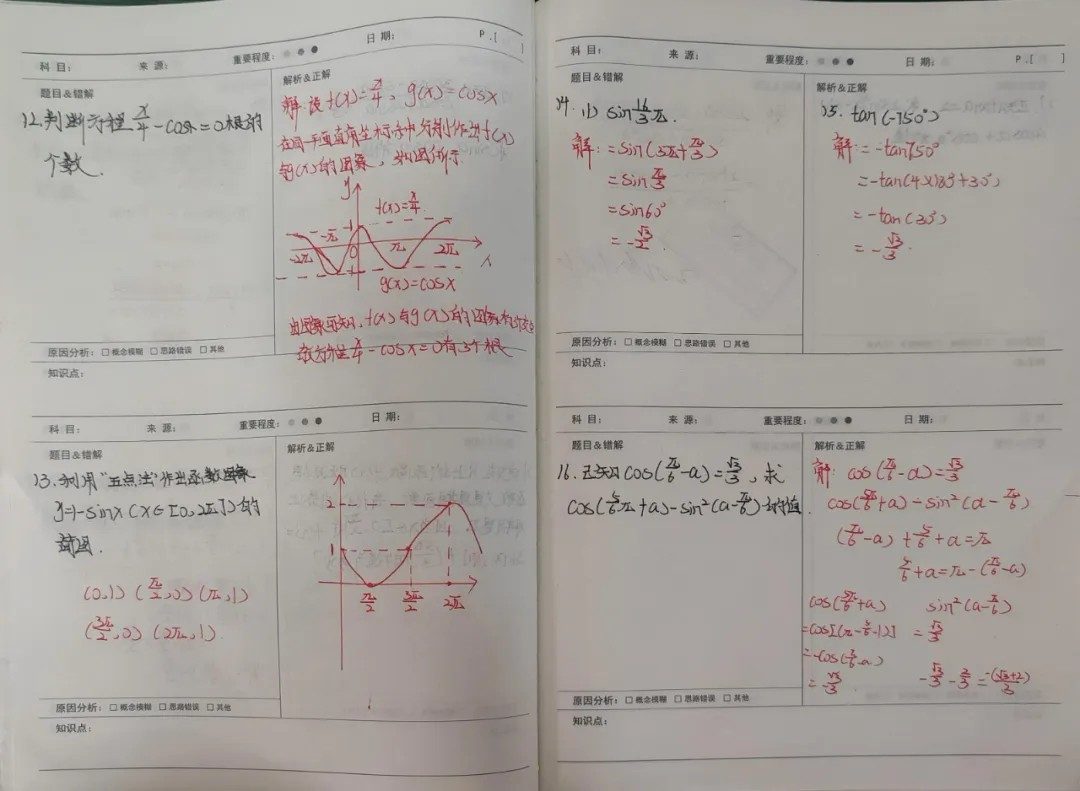 科 目: 来 源: 重要程度: 日 期: P.[ ]
题目&错解
12.判断方程x/4-cosx=0根的
个数.
解析&正解
解 设f(x)=x/4, g(x)=cosx
在同一平面直角坐标系中分别作出f(x)
与g(x)的图象, 如图所示
y
f(x)=x/4
1
-2π -π 0 π 2π
x
g(x)=cosx
由图象可知, f(x)与g(x)的图象有
x/4-cosx=0有3个根
原因分析: □ 概念模糊 □ 思路错误 □ 其他
知识点:
科 目: 来 源: 重要程度: 日 期:
题目&错解
13.利用"五点法"作出函数图象
y=1-sinx(x∈[0,2π])的
简图.
(0,1) (π/2,0) (π,1)
(3π/2,0) (2π,1).
解析&正解
2
1
π/2 3π/2 2π
原因分析: □ 概念模糊 □ 思路错误 □ 其他
知识点:
科 目: 来 源: 重要程度: 日 期: P.[ ]
题目&错解
14. (1) sin16/3π.
解:=sin(5π+π/3)
=sinπ/3
=sin60°
=-√3/2.
解析&正解
15. tan(-750°)
解:=-tan750°
=-tan(4×180°+30°)
=-tan(30°)
=-√3/3.
原因分析: □ 概念模糊 □ 思路错误 □ 其他
知识点:
科 目: 来 源: 重要程度: 日 期:
题目&错解
16. 已知cos(π/6-a)=√3/3, 求
cos(5/6π+a)-sin²(a-π/6)的值.
解析&正解
解: cos(π/6-a)=√3/3
cos(5π/6+a)-sin²(a-π/6)
(π/6-a)+5/6+a=π
5/6+a=π-(π/6-a)
cos(5π/6+a) sin²(a-π/6)
=√3/3
=√3/3 -√3/3-2/3=-(√3+2)/3
原因分析: □ 概念模糊 □ 思路错误 □ 其他
知识点: